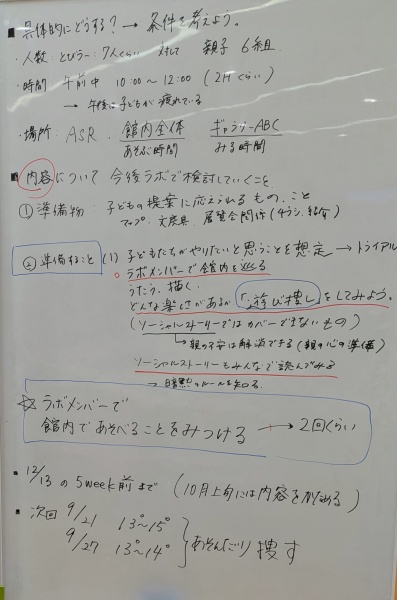 ■ 具体的にどうする? → 条件を考えよう。
・人数:とびラー:7人くらい 対して 親子6組
・時間 午前中 10:00～12:00 (2Hくらい)
→ 午後は子どもが疲れている
・場所:ASR、館内全体 ギャラリーABC
あそぶ時間 みる時間
■ 内容について 今後ラボで検討していくこと
① 準備物:子どもの提案に応えられるもの、こと
マップ、文房具、展覧会関係(チラシ、紹介)
② 準備すること (1) 子どもたちがやりたいと思うことを想定 → トライアル
ラボメンバーで館内を巡る
うたう、描く、
どんな楽しさがあるか「遊び捜し」をしてみよう。
(ソーシャルストーリーではカバーできないもの)
→ 親の不安は解消できる(親の心の準備)
ソーシャルストーリーもみんなで読んでみる
→ 暗黙のルールを知る。
☆ ラボメンバーで
館内であそべることをみつける → 2回くらい
■ 12/13 の 5week前まで (10月上旬には内容をかためる)
■ 次回 9/21 13°～15°
9/27 13°～14°
} あそんだり 捜す